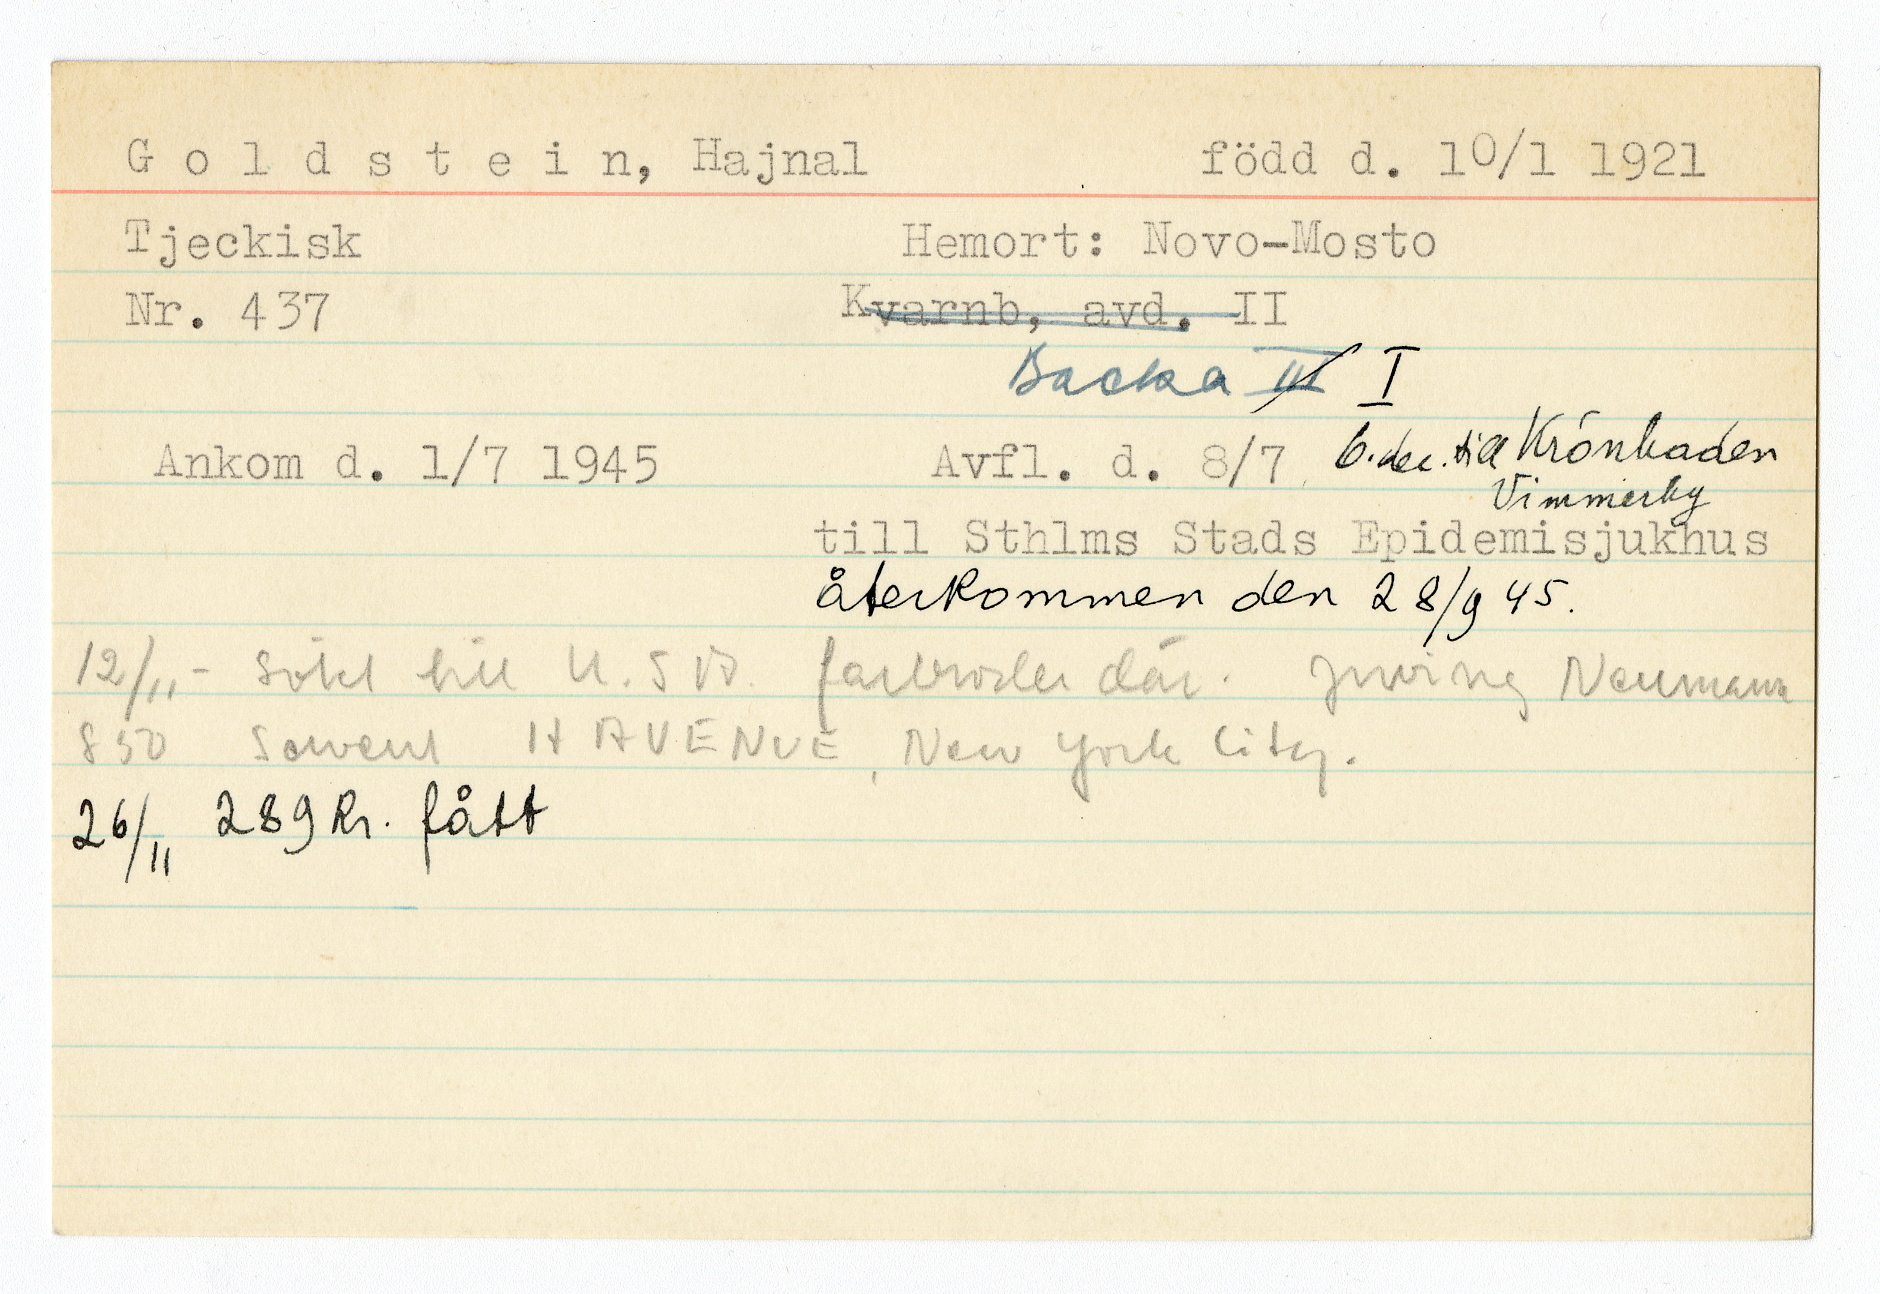 Goldstein, Hajnal född d. 10/1 1921
Tjeckisk Hemort: Novo-Mosto
Nr. 437 Kvarnb, avd. II
Backa III I
Ankom d. 1/7 1945 Avfl. d. 8/7 6. dec. till Krönbaden
Vimmerby
till Sthlms Stads Epidemisjukhus
återkommen den 28/9 45.
12/11 - Sökt till U.S.A. farbroder där. Irving Neumann
850 H AVENUE, New York City.
26/11 289 Kr. fått